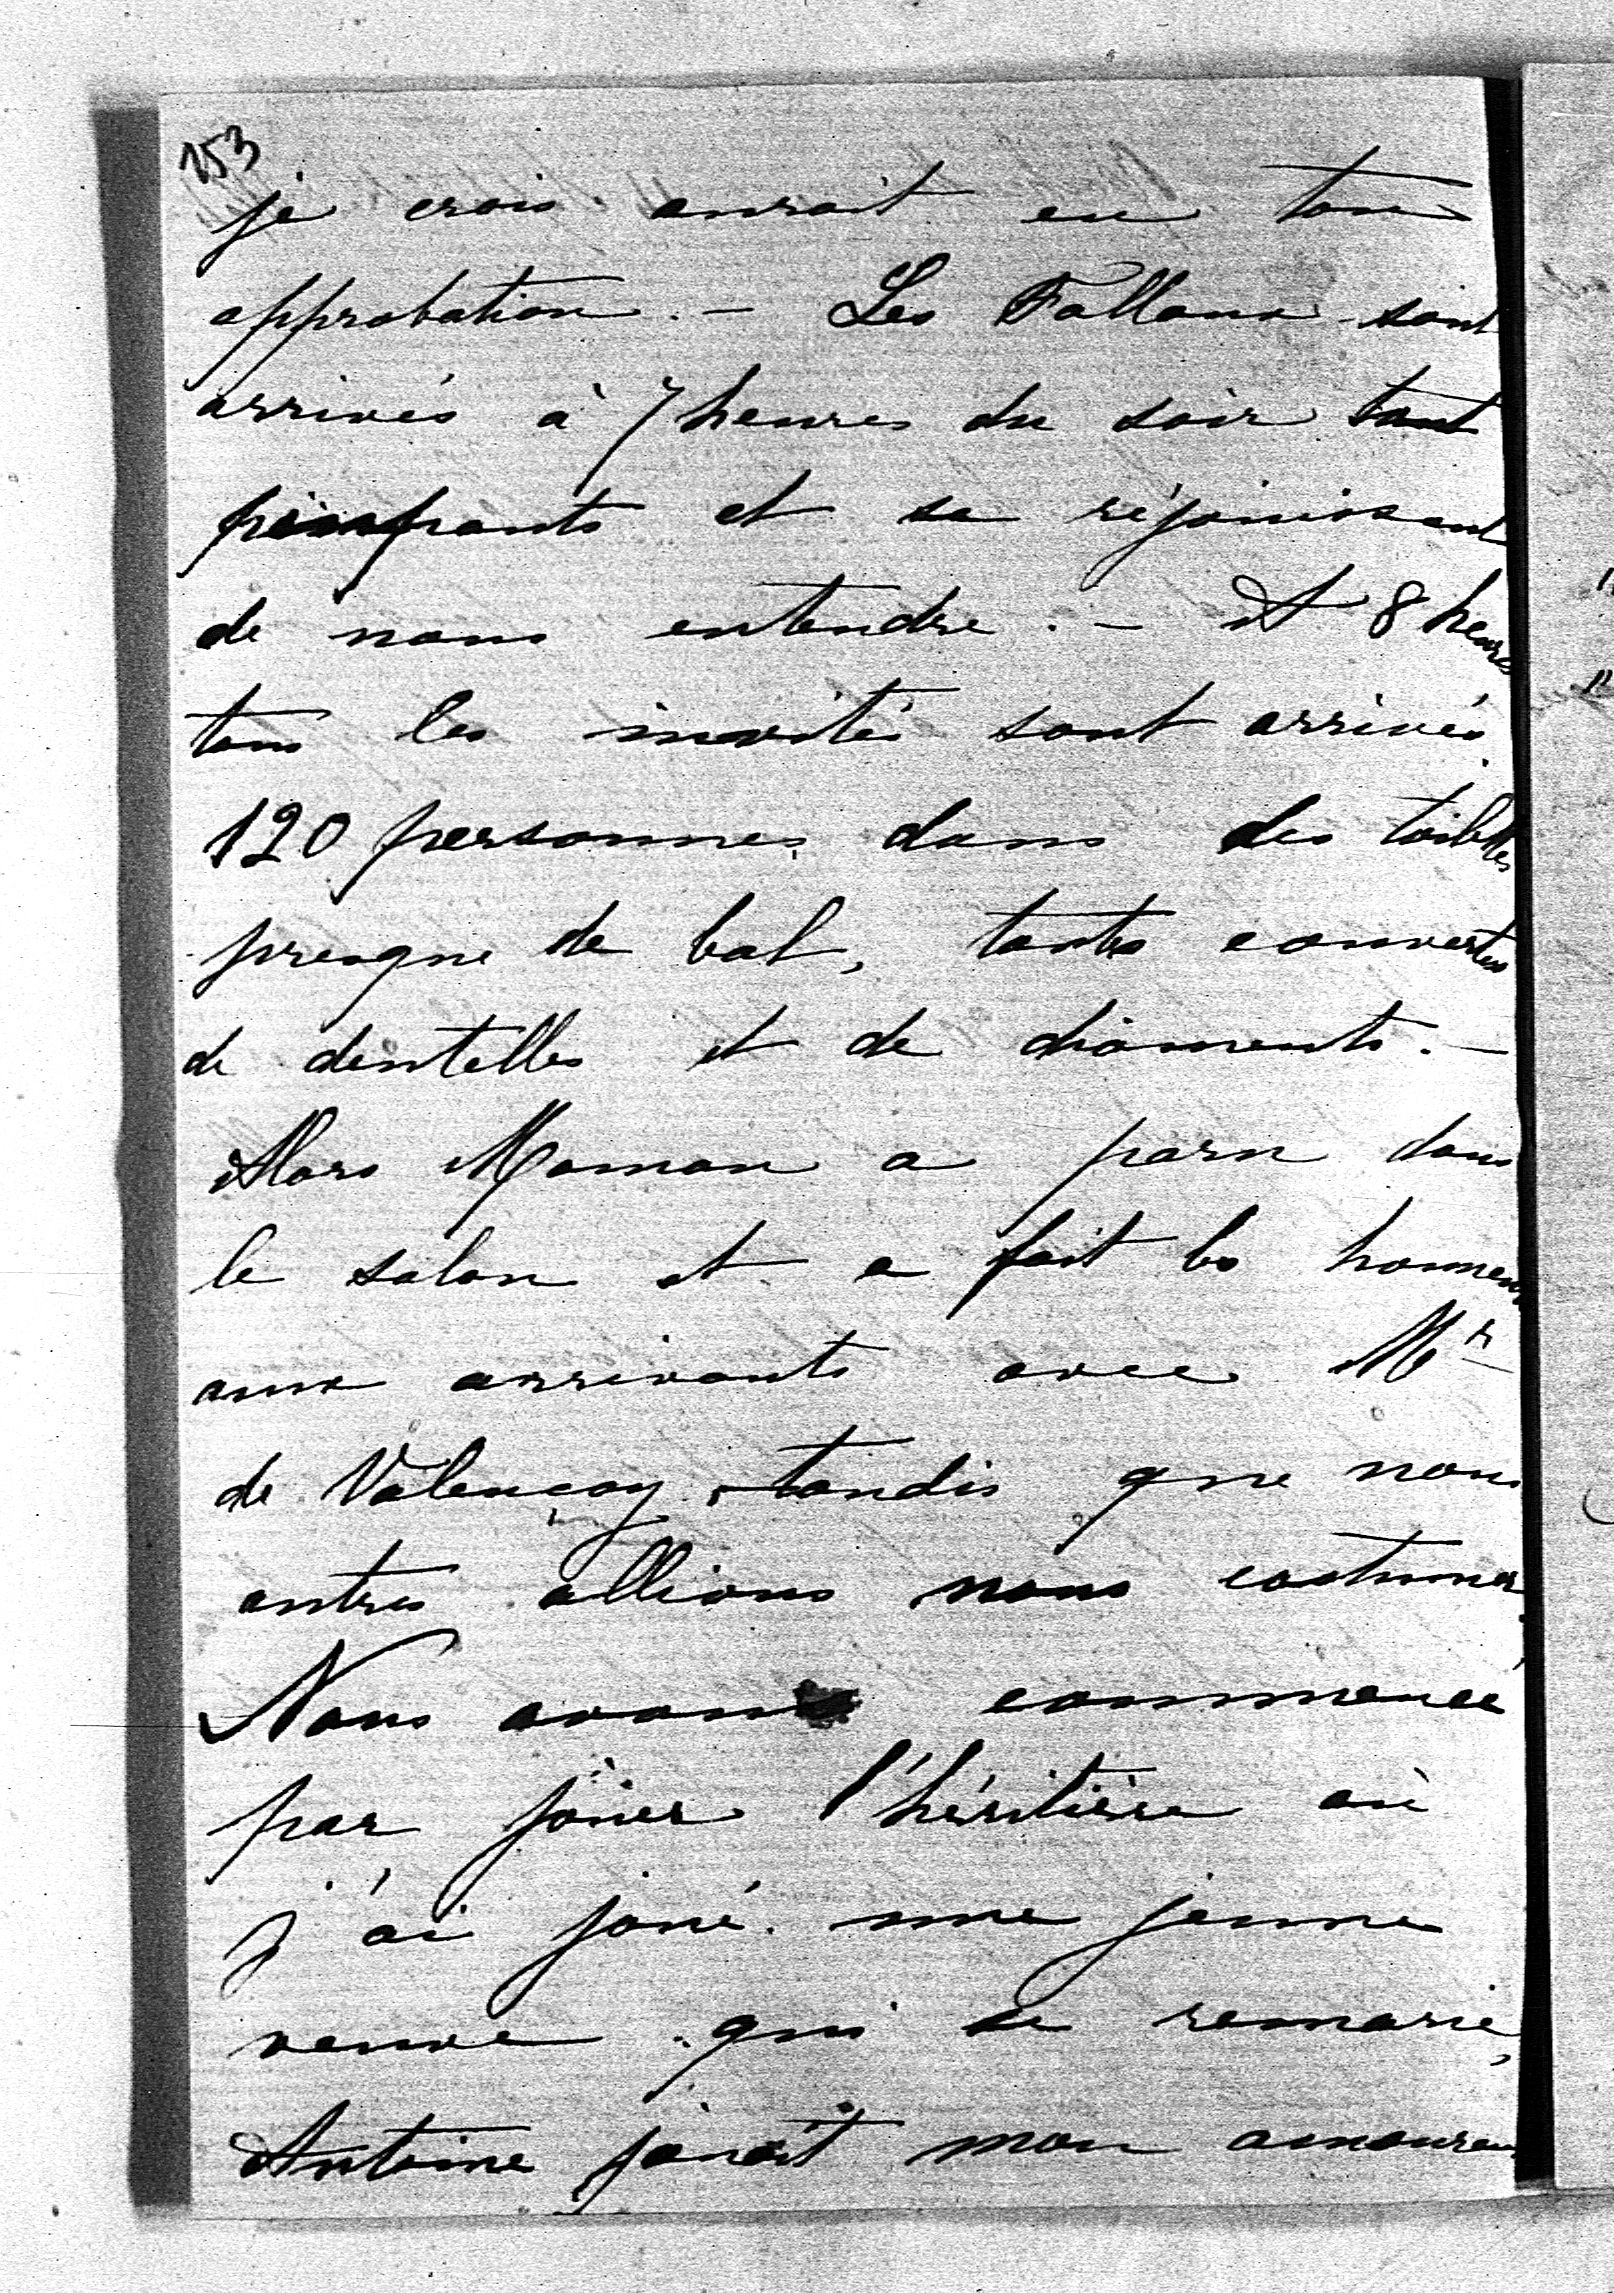 153
je crois aurait eu ton
approbation. – Les Falloux sont
arrivés à 7 heures du soir tout
pimpants et se réjouissant
de nous entendre. – A 8 heures
tous les invités sont arrivés
120 personnes dans des toilettes
presque de bal, toutes couvertes
de dentelles et de diamants. –
Alors Maman a paru dans
le salon et a fait les honneurs
aux arrivants avec Mr
de Valençay, tandis que nous
autres allions nous costumer.
Nous avons commencé
par jouer l'héritière où
j'ai joué une jeune
veuve qui se remarie,
Antoine jouait mon amoureux